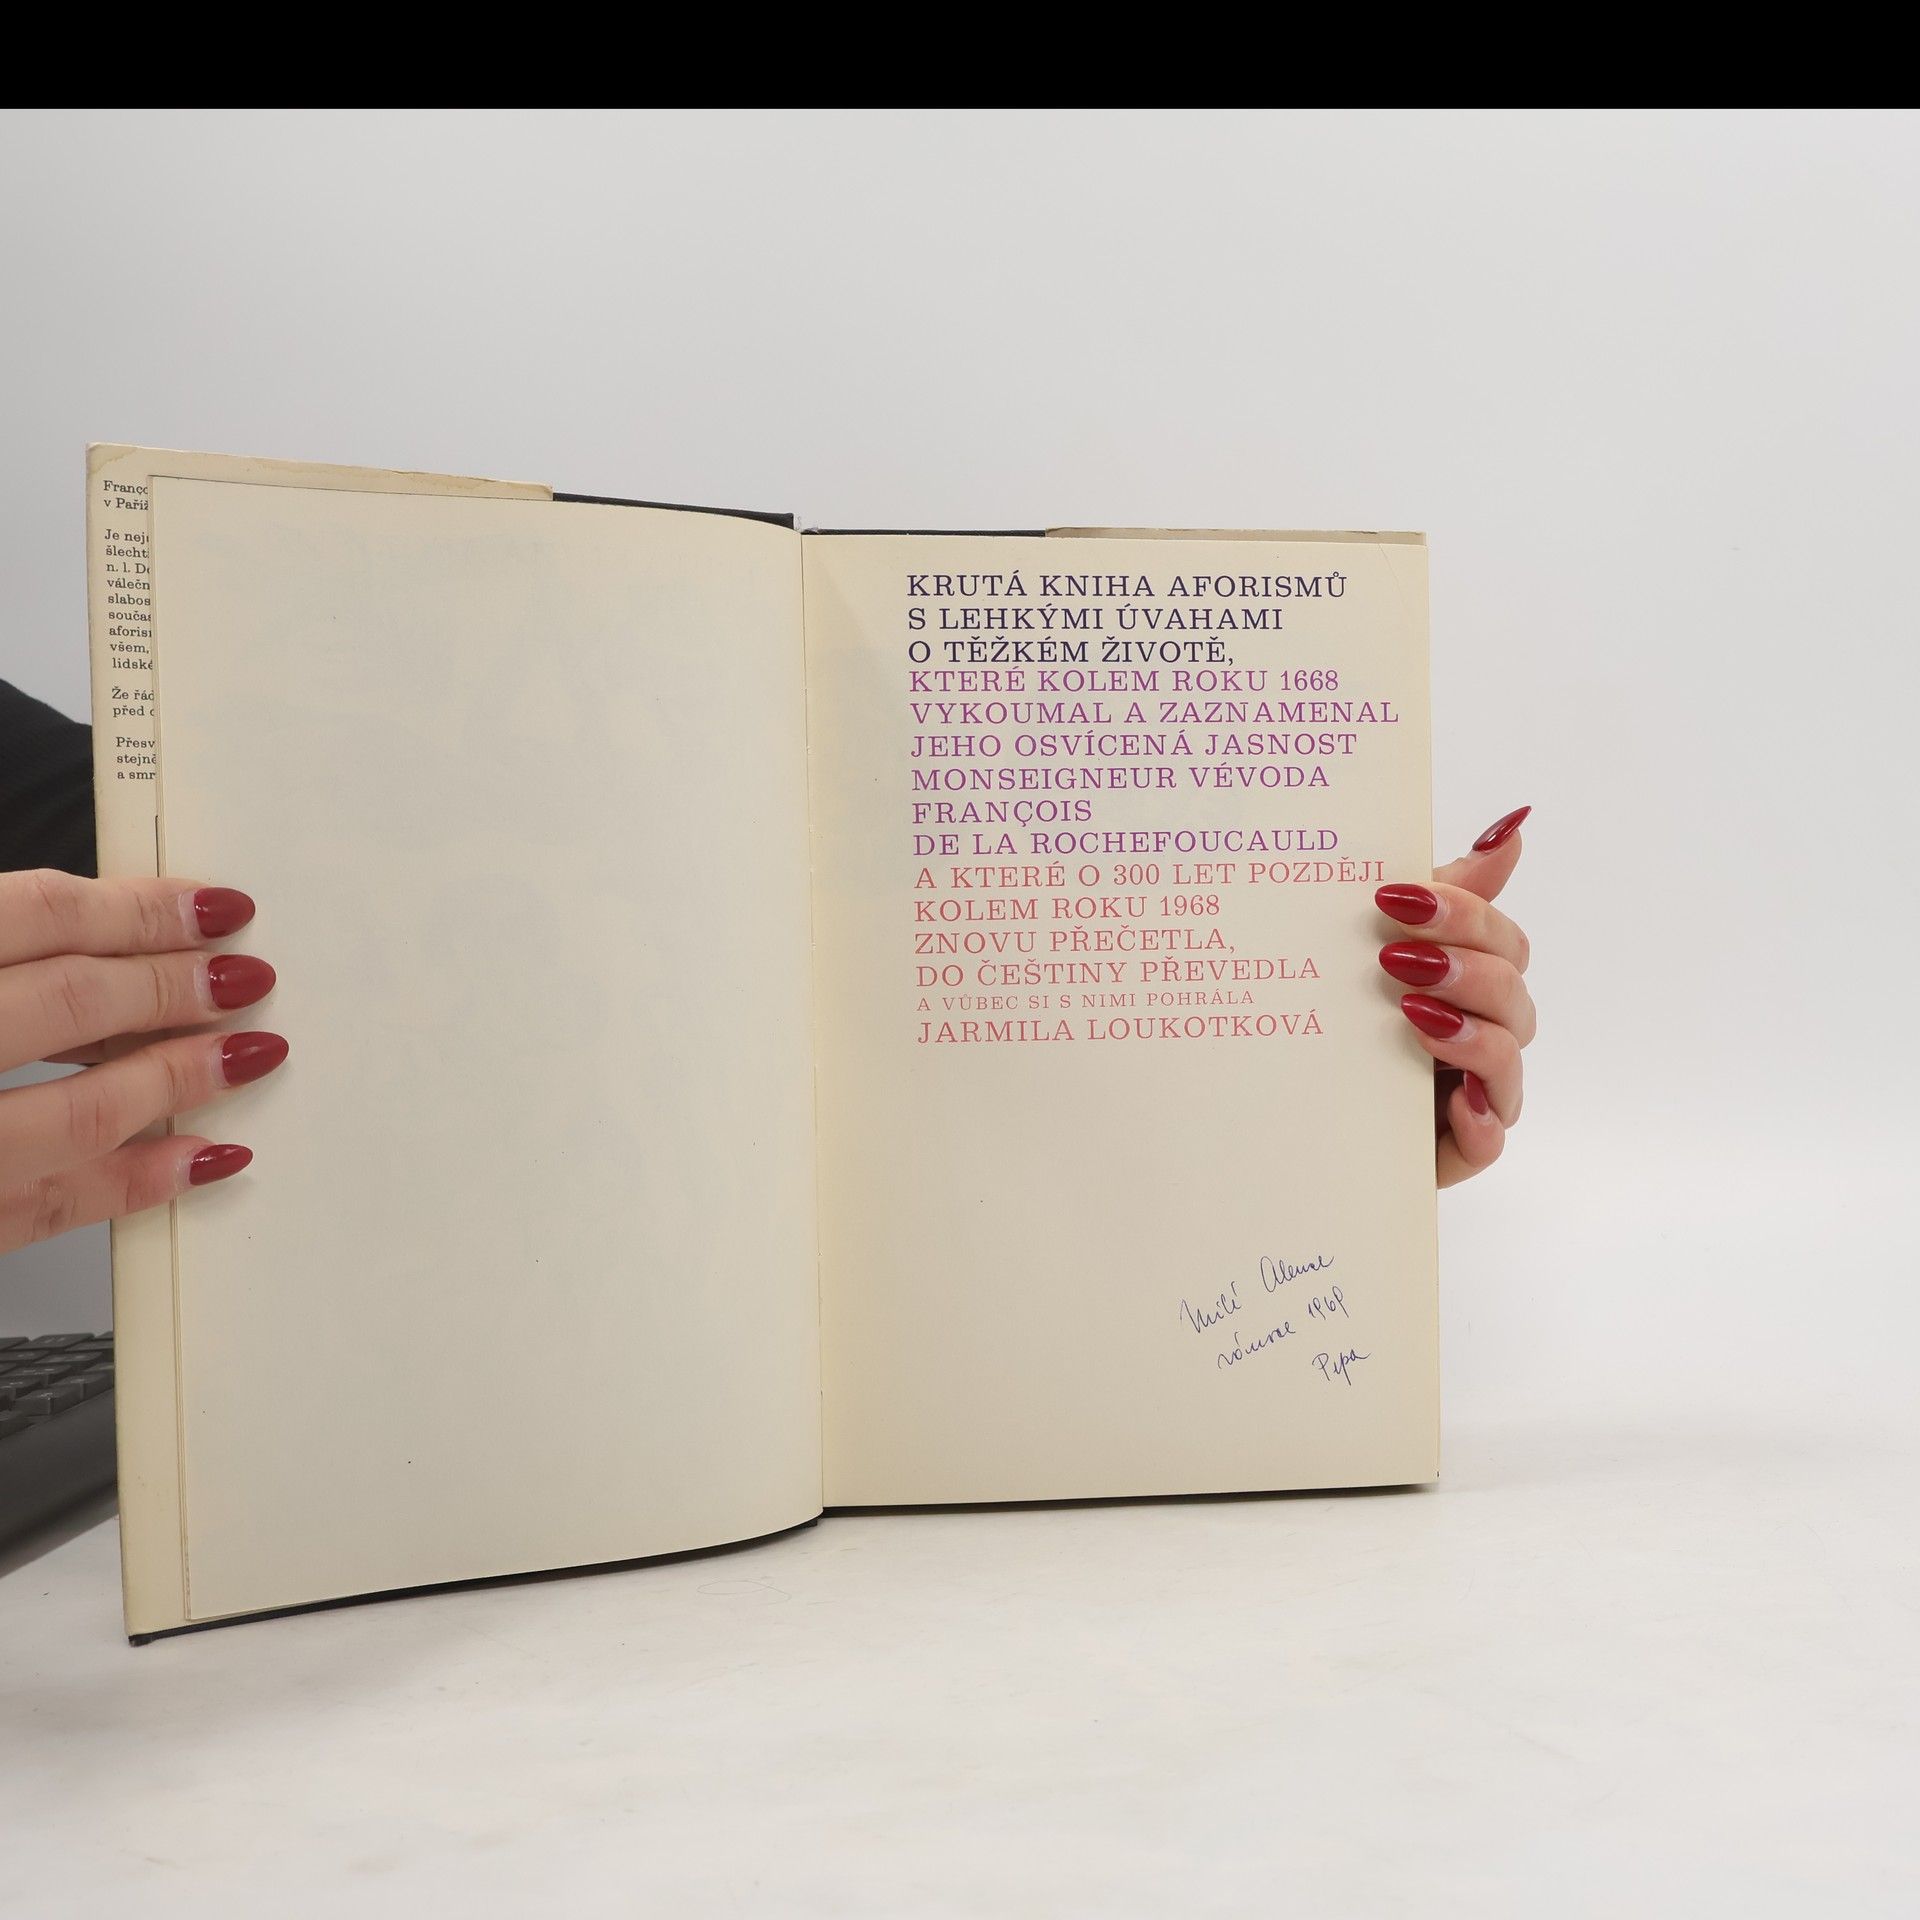 Franço
v Paříž
Je nej
šlecht
n. l. D
válečn
slabos
součas
aforis
všem,
lidské
Že řád
před
Přesv
stejně
a smr
KRUTÁ KNIHA AFORISMŮ
S LEHKÝMI ÚVAHAMI
O TĚŽKÉM ŽIVOTĚ,
KTERÉ KOLEM ROKU 1668
VYKOUMAL A ZAZNAMENAL
JEHO OSVÍCENÁ JASNOST
MONSEIGNEUR VÉVODA
FRANÇOIS
DE LA ROCHEFOUCAULD
A KTERÉ O 300 LET POZDĚJI
KOLEM ROKU 1968
ZNOVU PŘEČETLA,
DO ČEŠTINY PŘEVEDLA
A VŮBEC SI S NIMI POHRÁLA
JARMILA LOUKOTKOVÁ
Milé Alence
vánoce 1969
Pepa